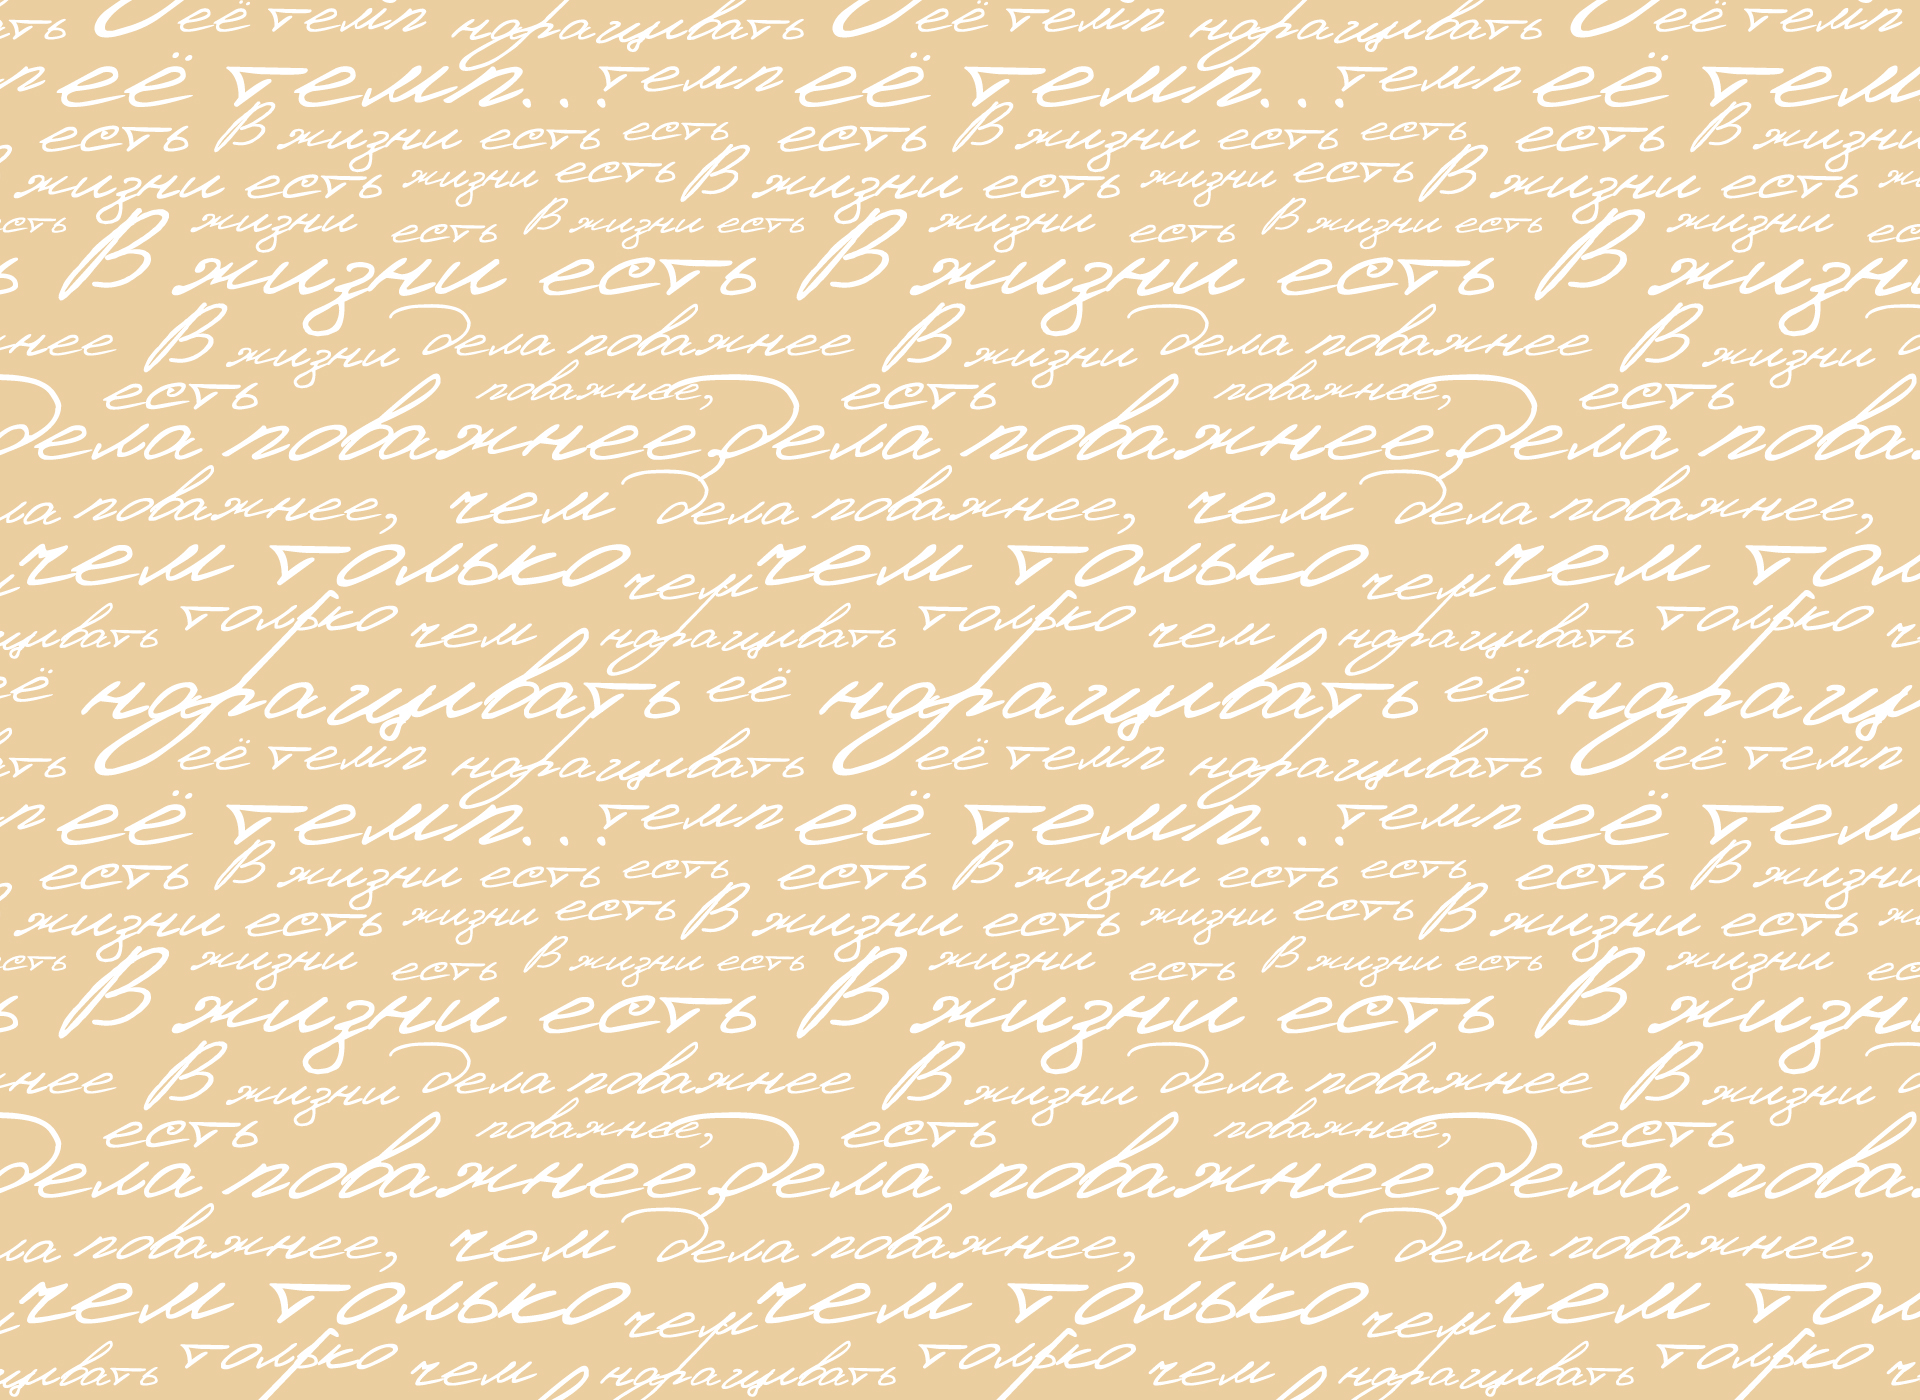 её темп наращивать её темп наращивать её темп
её темп... темп её темп... темп её
есть В жизни есть есть есть В жизни есть есть есть В
жизни есть жизни есть В жизни есть жизни есть В жизни есть
есть жизни есть В жизни есть жизни есть В жизни есть жизни
В жизни есть В жизни есть В
В жизни дела поважнее В жизни дела поважнее В жизни
есть поважнее, есть поважнее, есть
дела поважнее дела поважнее дела
поважнее, чем дела поважнее, чем дела поважнее,
чем только чем чем только чем чем
наращивать только чем наращивать только чем наращивать только
её наращивать её наращивать её
её темп наращивать её темп наращивать её темп
её темп... темп её темп... темп её
есть В жизни есть есть есть В жизни есть есть есть В
жизни есть жизни есть В жизни есть жизни есть В жизни есть
есть жизни есть В жизни есть жизни есть В жизни есть жизни
В жизни есть В жизни есть В
В жизни дела поважнее В жизни дела поважнее В жизни
есть поважнее, есть поважнее, есть
дела поважнее дела поважнее дела
поважнее, чем дела поважнее, чем дела поважнее,
чем только чем чем только чем чем
только чем наращивать только чем наращивать только